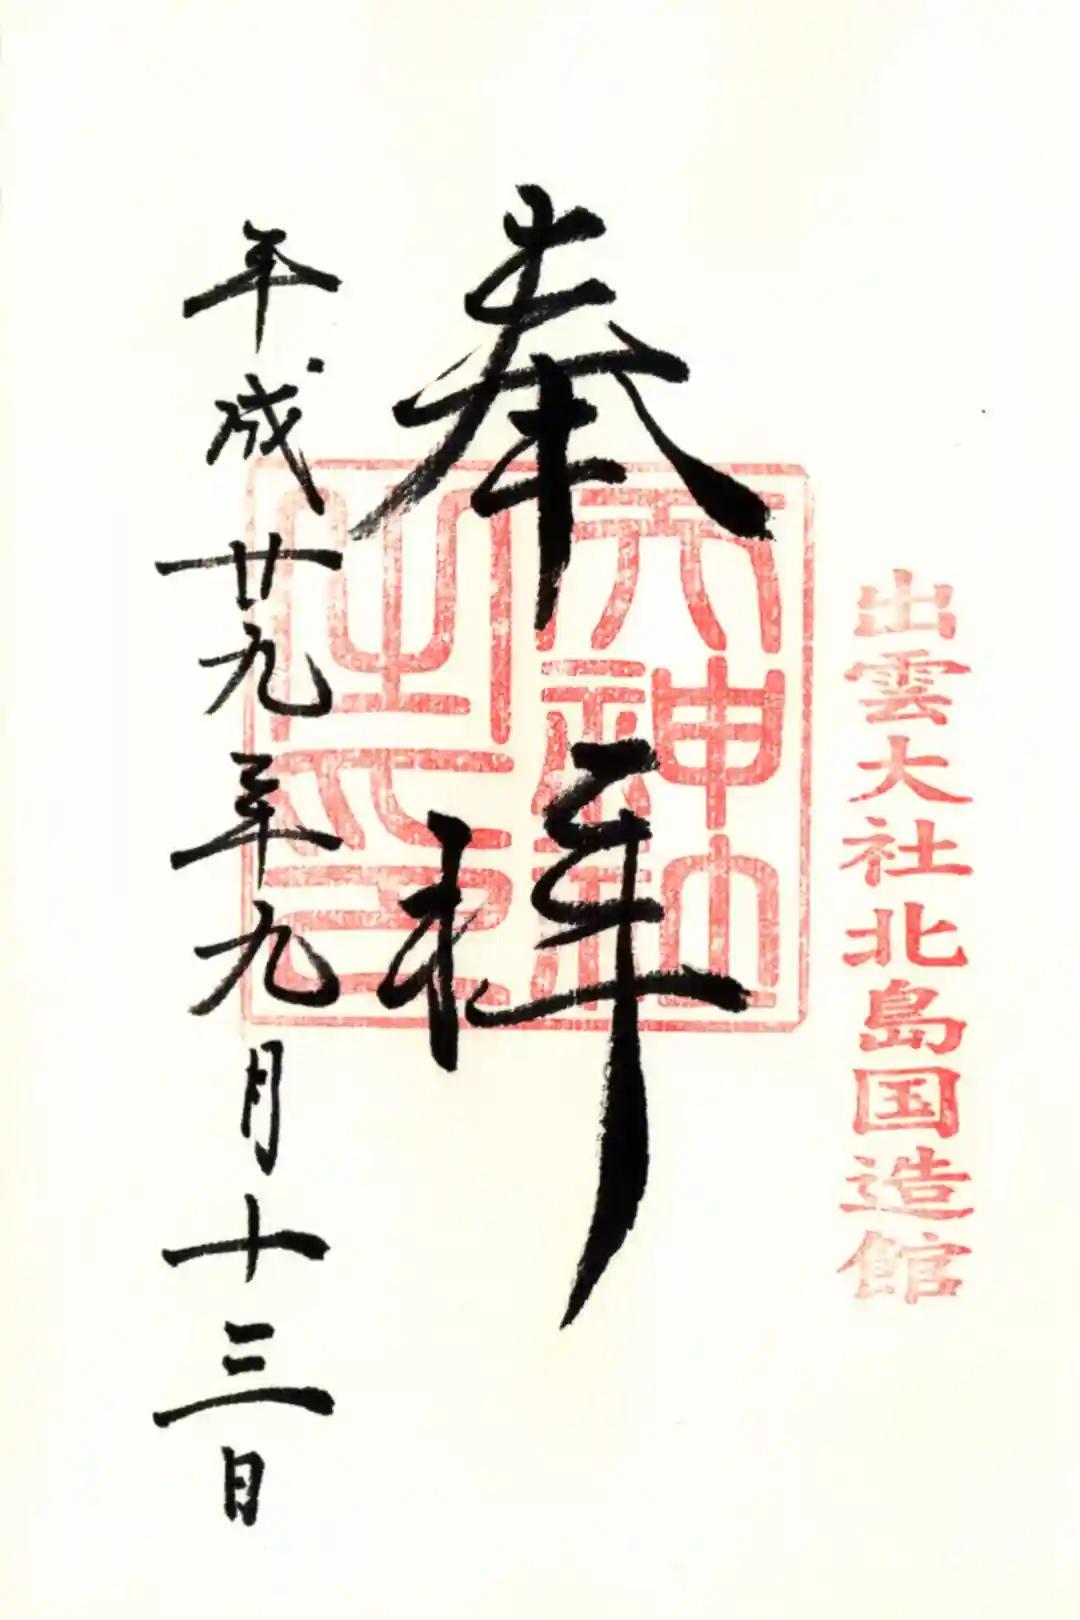 出雲大社北島国造館
奉拝
天神社之印
平成廿九年九月十三日